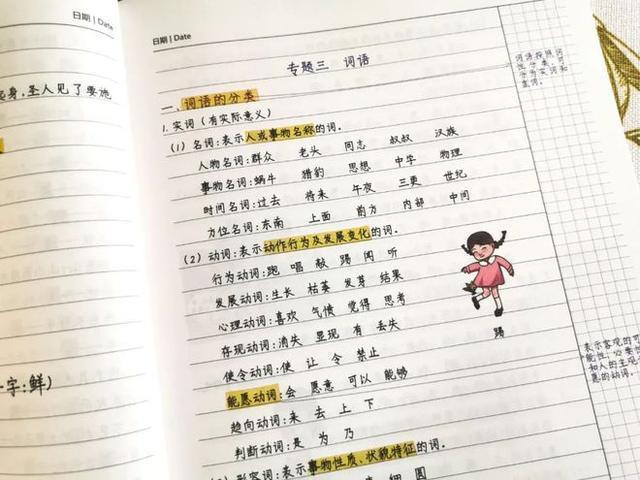 日期 | Date
起身,圣人见了要施
一字:鲜)
日期 | Date
专题三 词语
一、词语的分类
1.实词(有实际意义)
(1) 名词:表示人或事物名称的词。
人物名词:群众 老头 同志 叔叔 汉族
事物名词:蜗牛 猎豹 思想 中学 物理
时间名词:过去 将来 午夜 三更 世纪
方位名词:东南 上面 前方 内部 中间
(2) 动词:表示动作行为及发展变化的词。
行为动词:跑 唱 敲 踢 闻 听
发展动词:生长 枯萎 发芽 结果
心理动词:喜欢 气愤 觉得 思考
存现动词:消失 显现 有 丢失
使令动词:使 让 令 禁止
能愿动词:会 愿意 可以 能够
趋向动词:来 去 上 下
判断动词:是 为 乃
形容词:表示事物性质、状貌特征的词。
细 圆
踢
词语按照词
性分类,可
分为实词和
虚词。
表示客观的可
能性、必要性
和人的主观意
愿的动词。